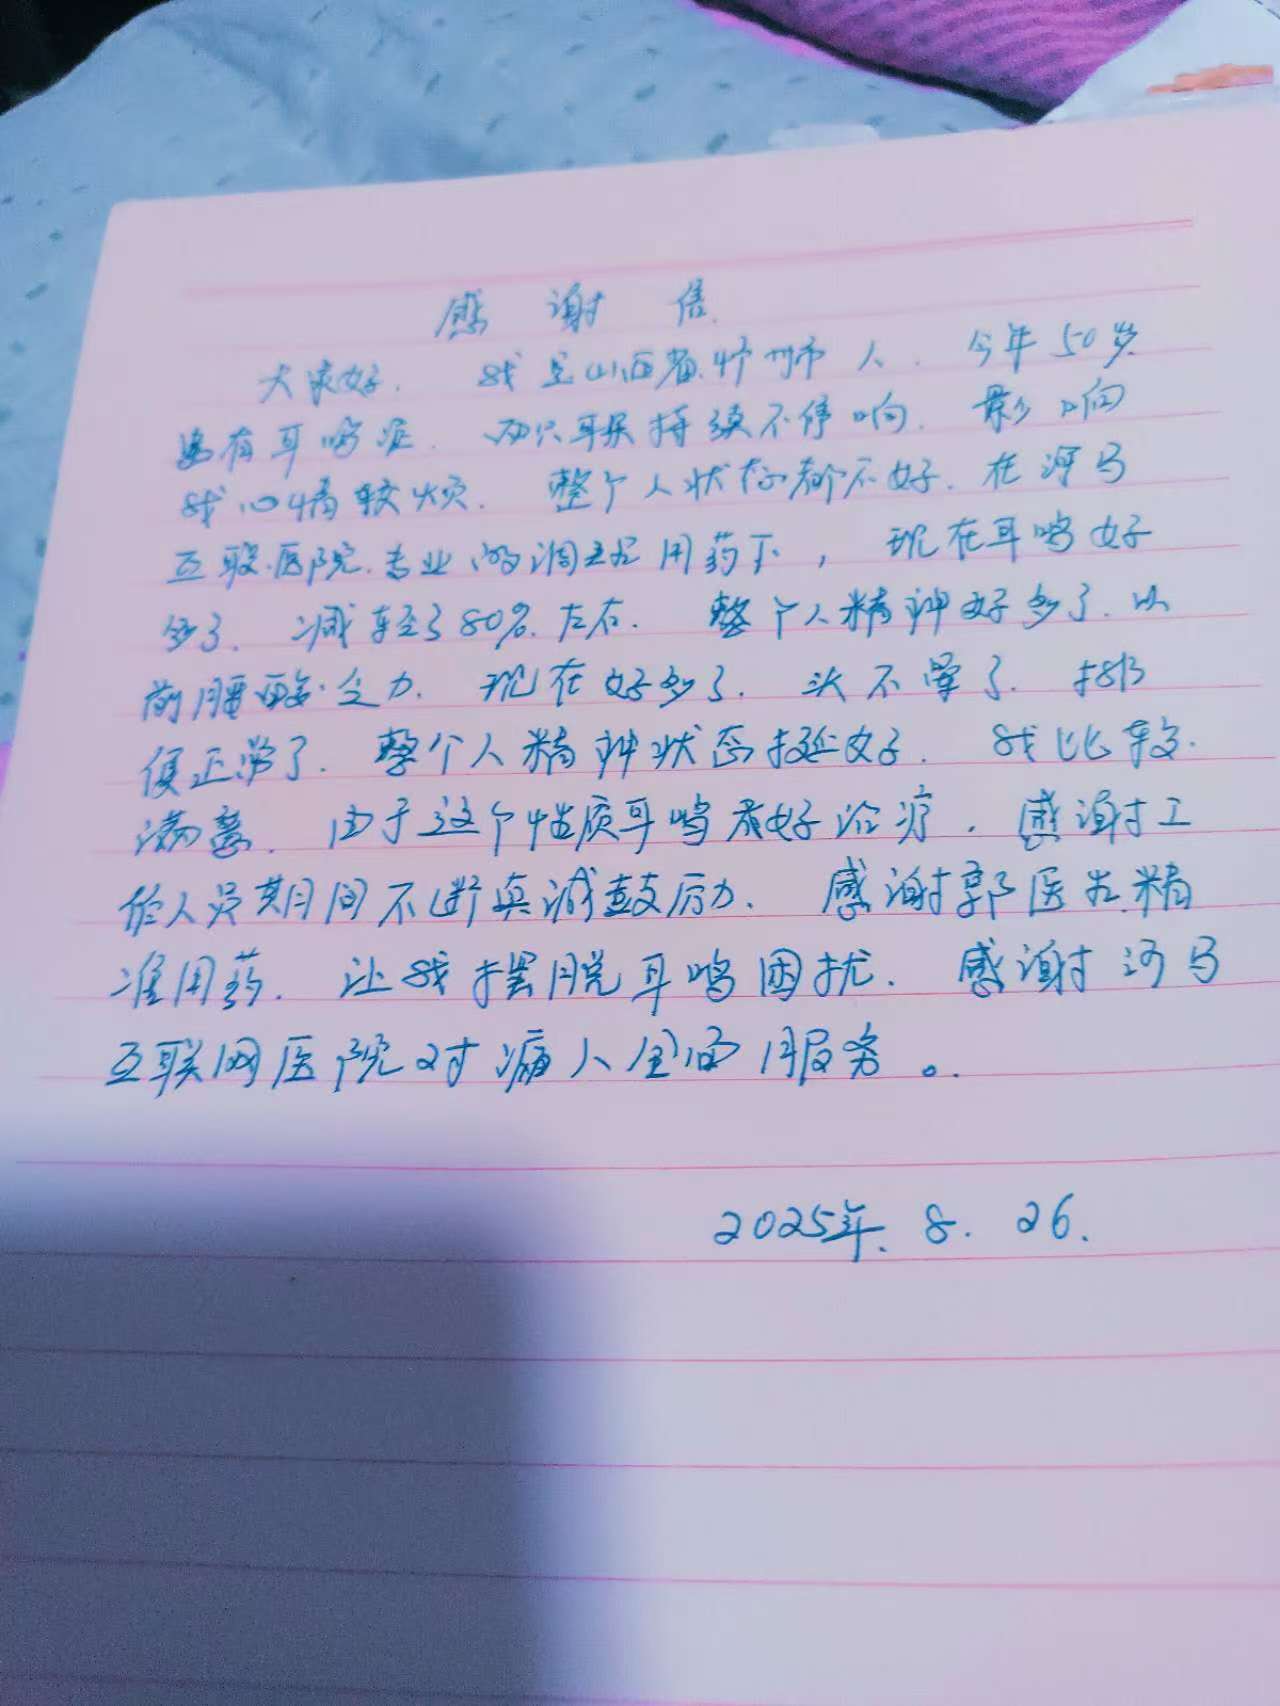 感谢信
大家好. 我是山西省忻州市人. 今年50岁
患有耳鸣症. 两只耳朵持续不停响. 影响
我心情较烦. 整个人状态都不好. 在河马
互联医院.专业的调理用药下, 现在耳鸣好
多了. 减轻了80%.左右. 整个人精神好多了.以
前腰酸.乏力. 现在好多了. 头不晕了. 排
便正常了. 整个人精神状态挺好. 我比较.
满意. 由于这个性质耳鸣难好治疗. 感谢工
作人员期间不断真诚鼓励. 感谢郭医生.精
准用药. 让我摆脱耳鸣困扰. 感谢河马
互联网医院对病人全面服务。
2025年. 8. 26.